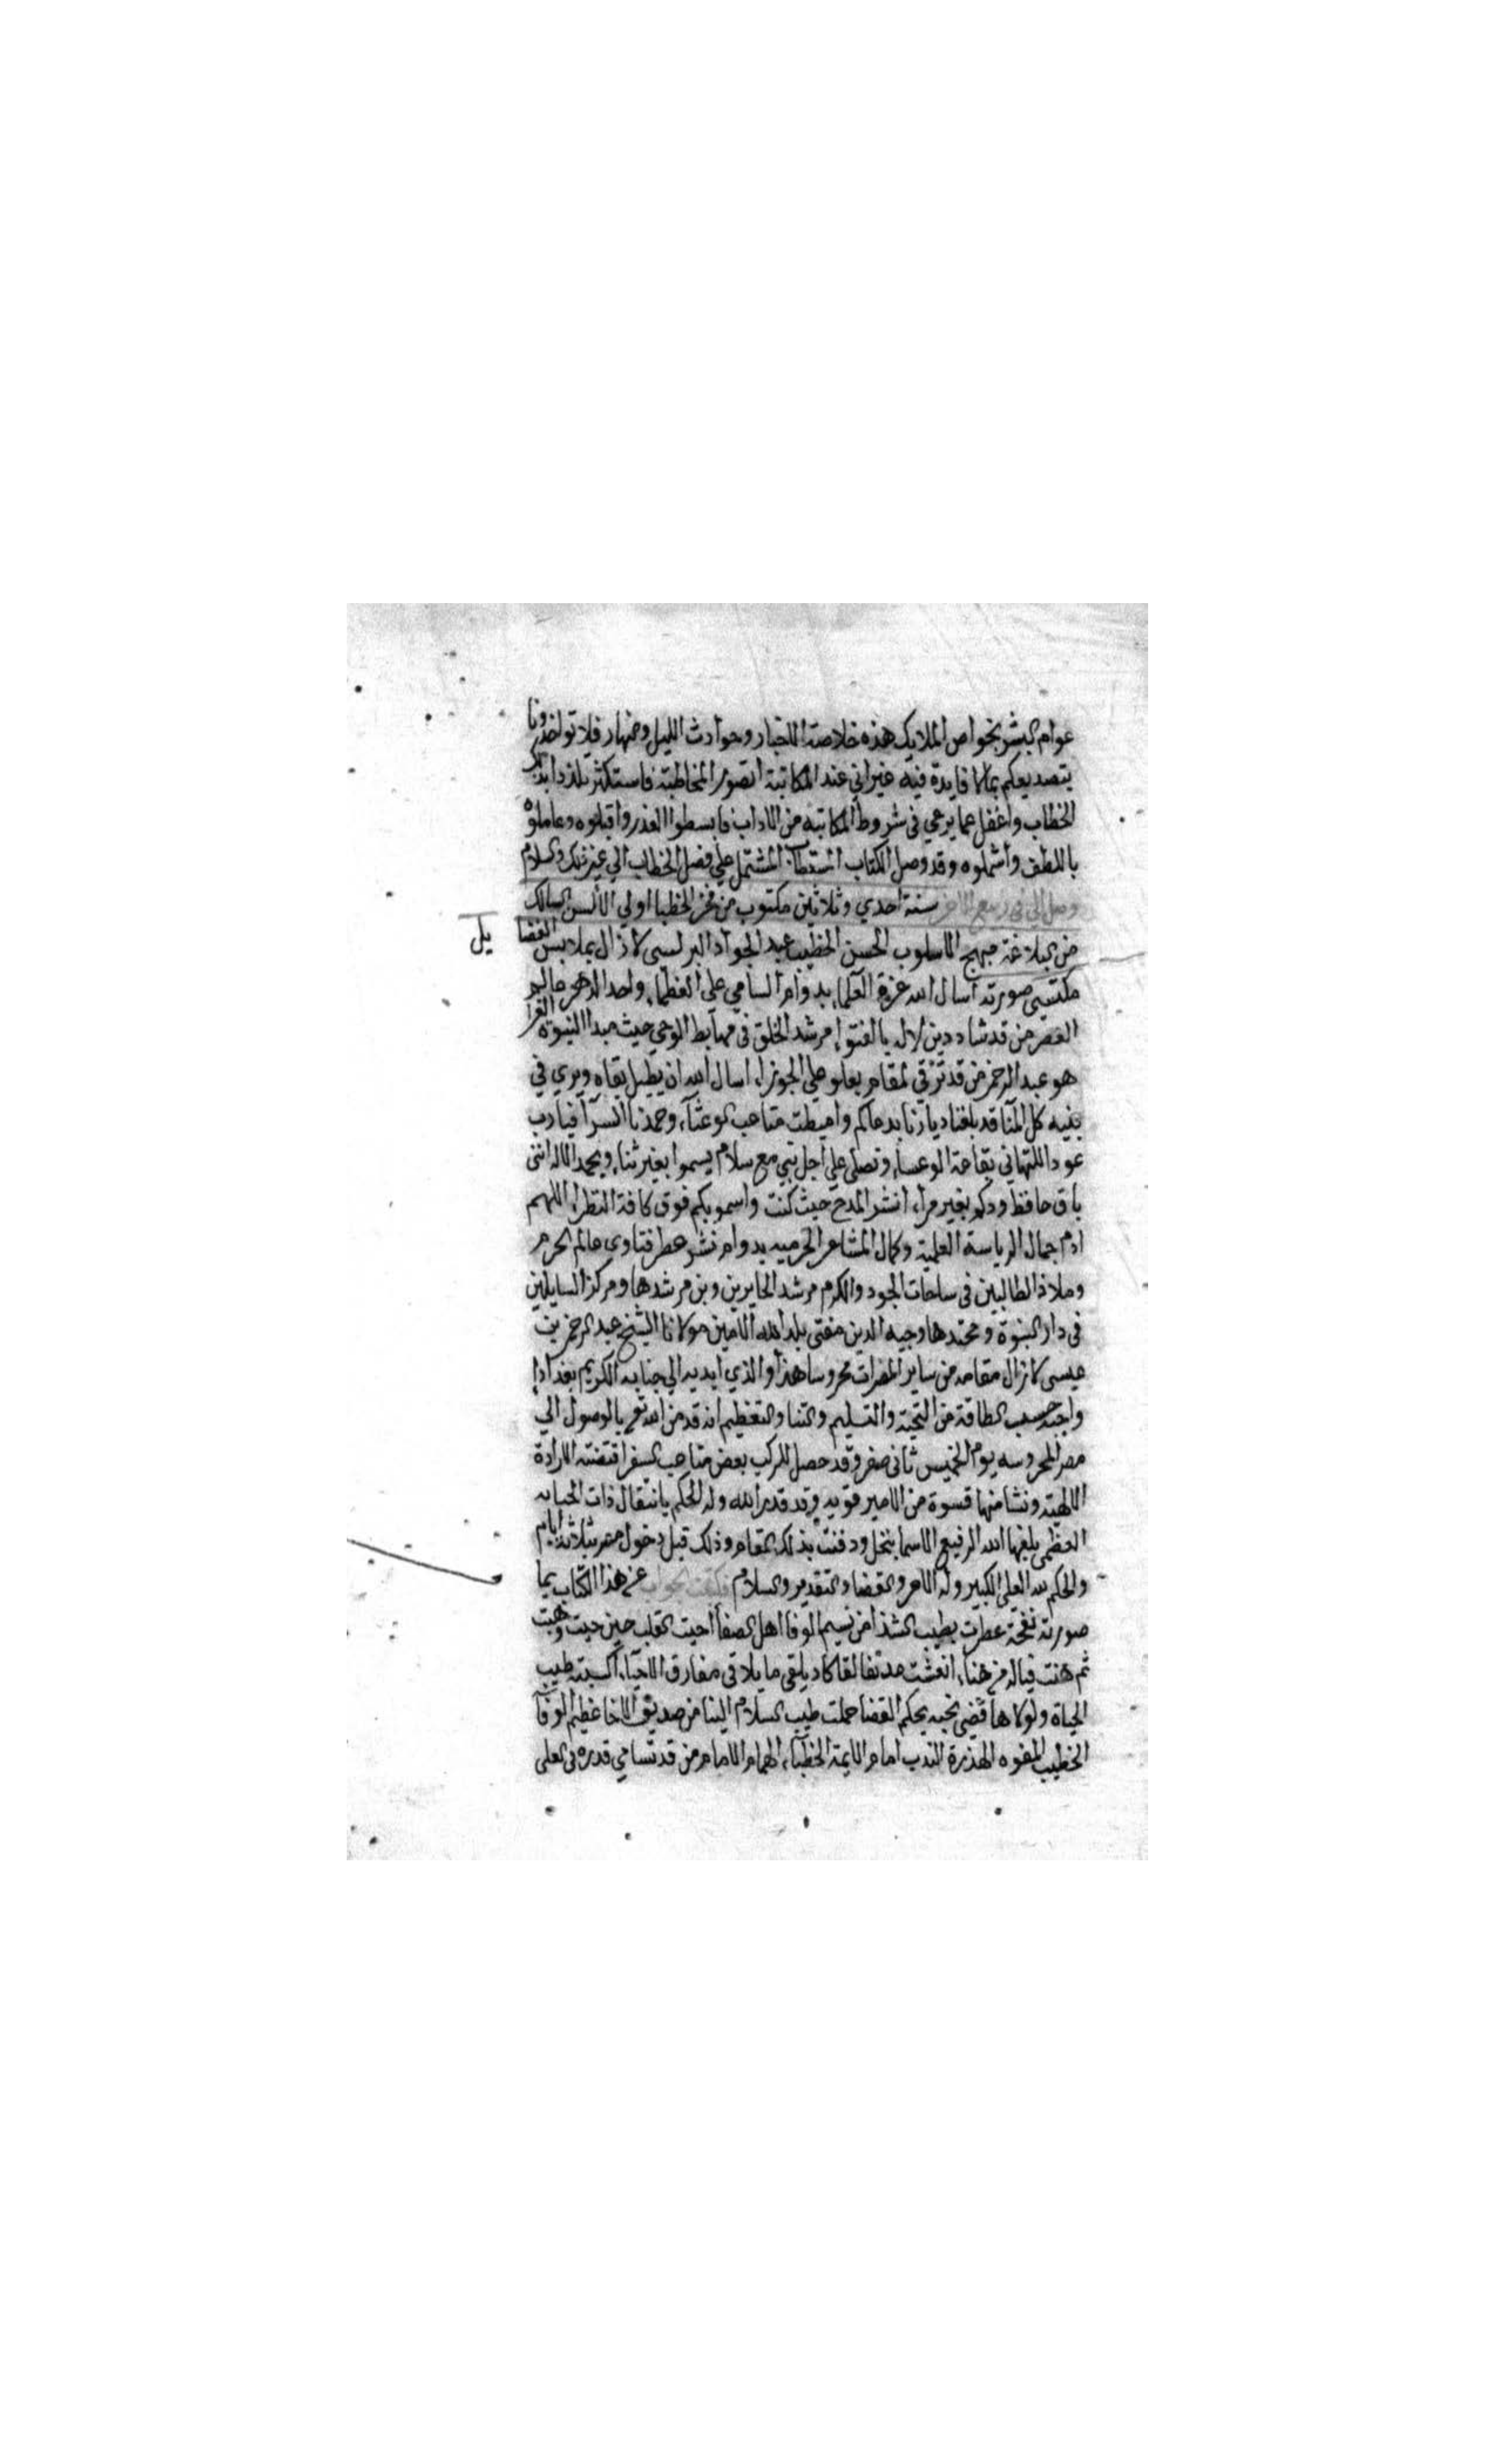 عوام البشر بخواص الملايك هذه خلاصة الاخبار وحوادث الليل والنهار فلا تواخذونا
بتصديعكم بما لا فايدة فيه غير اني عند المكاتبة اتصور المخاطبة فاستكثر تلذذا بذكر
الخطاب واغفل عما يرعي في شروط المكاتبة من الاداب فابسطوا العذر واقبلوه وعاملوه
باللطف واشملوه وقد وصل الكتاب المستطاب المشتمل علي فصل الخطاب الي غير ذلك والسلام
وصل الي في ربيع الاخر سنة احدي وثلاثين مكتوب من فخر الخطبا اولي الألسن السالك
من البلاغة مبهج الاسلوب الحسن الخطيب عبد الجواد البرلسي لا زال بملابس الفضا
يل
مكتسي صورته أسال الله عزة العلما، بدوام السامي على العظما، واحد الدهر عالم
العصر من قد شاد دين الاله بالفتوا، مرشد الخلق في مهابط الوحي حيث مبدا النبوة الغرا
هو عبد الرحمن من قد ترقي لمقام يعلو علي الجوزا، اسال الله ان يطيل بقاه ويري في
بنيه كل المنا قد بلغنا ديارنا بدعاكم واميطت متاعب الوعثآ، وحمدنا السرآ فيا رب
عودا للتهاني بقاعة الوعسا، ونصلي علي اجل نبي مع سلام يسموا بغير ثنا، وبحمد الاله انني
باق حافظ ودكم بغير مرآ، انشر المدح حيث كنت واسمو بكم فوق كافة النظرا، اللهم
ادم جمال الرياسة العلمية وكمال المشاعر الحرميه بدوام نشر عطر فتاوي عالم الحرم
وملاذ الطالبين في ساحات الجود والكرم مرشد الحايرين وبن مرشدها ومركز السايلين
في دار النبوة ومحتدها وجيه الدين مفتي بلد الله الامين مولانا الشيخ عبد الرحمن بن
عيسى لا زال مقامه من ساير المضرات محروسا هذا والذي ابديه الي جنابه الكريم بعد ادا
واجبه حسب الطاقة من التحية والتسليم والثنا والتعظيم انه قد من الله تعالى بالوصول الي
مصر المحروسه يوم الخميس ثاني صفر وقد حصل للركب بعض متاعب السفر اقتضته الارادة
الالهية ونشا منها قسوة من الامير قويه وقد قدر الله وله الحكم بانتقال ذات الحبابه
العظمى بلغها الله الرفيع الاسما بنخل ودفنت بذلك المقام وذلك قبل دخول مصر بثلاثة ايام
والحكم لله العلي الكبير وله الامر والقضا والتقدير والسلام فكتبت الجواب عن هذا الكتاب بما
صورته نفحة عطرت بطيب الشذا من نسيم الوفا اهل الصفا احيت القلب حين حيت وهبت
ثم هنت فياله من هنا، انعشت مدنفا لقا كاد يلقي ما يلاقي مفارق الاحيا، اكسبته طيب
الحياة ولولاها قضي نحبه بحكم القضا حملت طيب السلام الينا من صديق الاخا عظيم الوفآ
الخطيب المفوه الهذرة الندب امام الايمة الخطبا، الهمام الامام من قد تسامي قدره في العلى